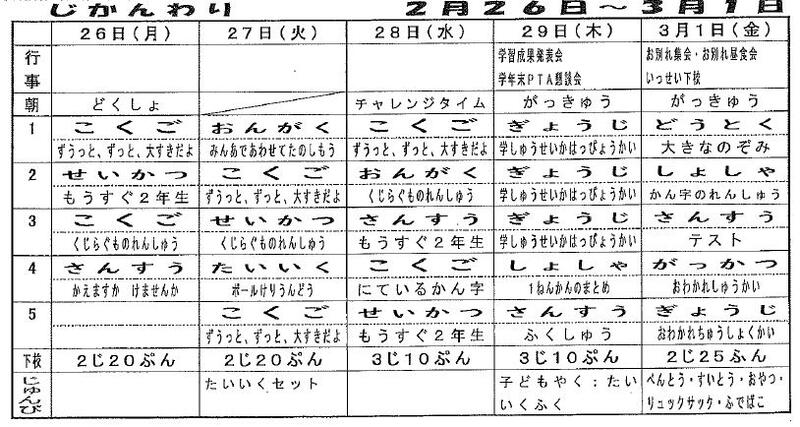 じかんわり 2月26日～3月1日
26日(月) 27日(火) 28日(水) 29日(木) 3月1日(金)
行事 学習成果発表会 お別れ集会・お別れ昼食会
学年末PTA懇談会 いっせい下校
朝 どくしょ チャレンジタイム がっきゅう がっきゅう
1 こくご おんがく こくご ぎょうじ どうとく
ずうっと、ずっと、大すきだよ みんあであわせてたのしもう ずうっと、ずっと、大すきだよ 学しゅうせいかはっぴょうかい 大きなのぞみ
2 せいかつ こくご おんがく ぎょうじ しょしゃ
もうすぐ2年生 ずうっと、ずっと、大すきだよ くじらぐものれんしゅう 学しゅうせいかはっぴょうかい かん字のれんしゅう
3 こくご せいかつ さんすう ぎょうじ さんすう
くじらぐものれんしゅう くじらぐものれんしゅう もうすぐ2年生 学しゅうせいかはっぴょうかい テスト
4 さんすう たいいく こくご しょしゃ がっかつ
かえますか けませんか ボールけりうんどう にているかん字 1ねんかんのまとめ おわかれしゅうかい
5 こくご せいかつ さんすう ぎょうじ
ずうっと、ずっと、大すきだよ もうすぐ2年生 ふくしゅう おわかれちゅうしょくかい
下校 2じ20ぷん 2じ20ぷん 3じ10ぷん 3じ10ぷん 2じ25ふん
じゅんび たいいくセット 子どもやく:たい べんとう・すいとう・おやつ・
いくふく リュックサック・ふでばこ